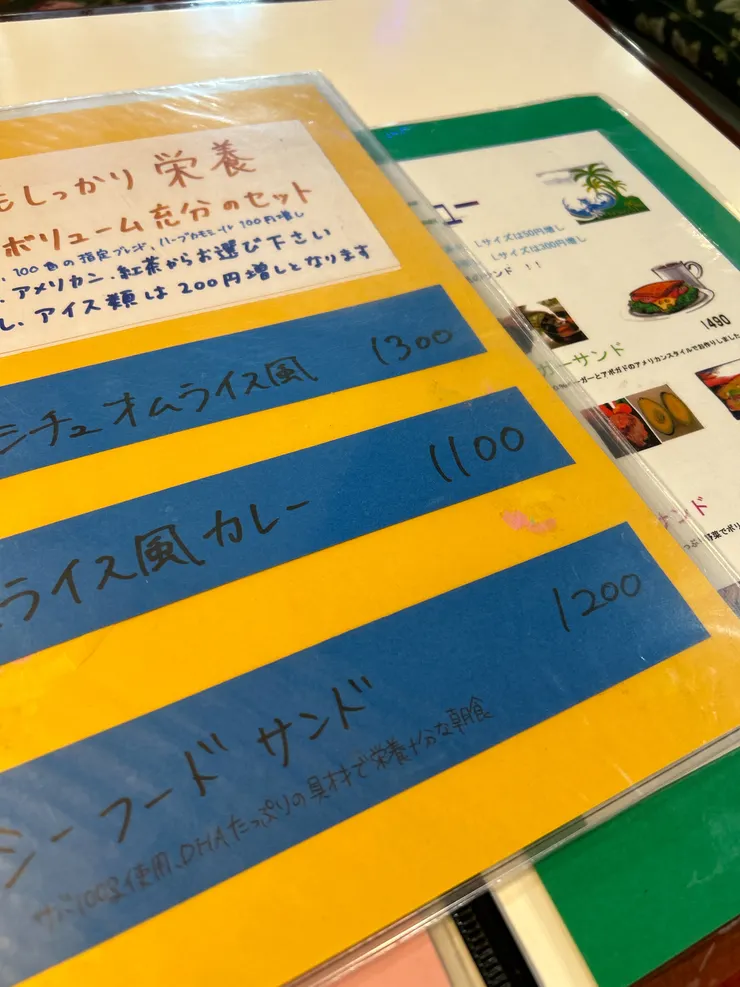 もしっかり 栄養
ボリューム充分のセット
100番の指定ブレンド、ハーブカモミール 100円増し
、アメリカン、紅茶からお選び下さい
し、アイス類は200円増しとなります
シチュオムライス風 1300
ライス風カレー 1100
シーフードサンド 1200
サバ100g使用、DHAたっぷりの具材で栄養十分な朝食
ニュー
Lサイズは50円増し
Lサイズは300円増し
サンド !!
1490
ガーサンド
バーガーとアボガドのアメリカンスタイルでお作りしました
サンド
野菜でボリ